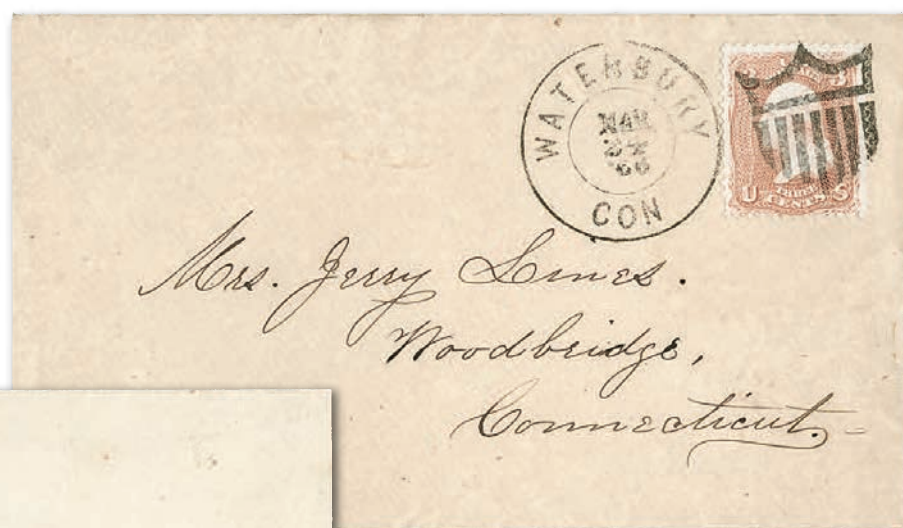 WATERBURY
MAR
'66
CON
U S
CENTS
Mrs. Jerry Lines.
Woodbridge,
Connecticut.